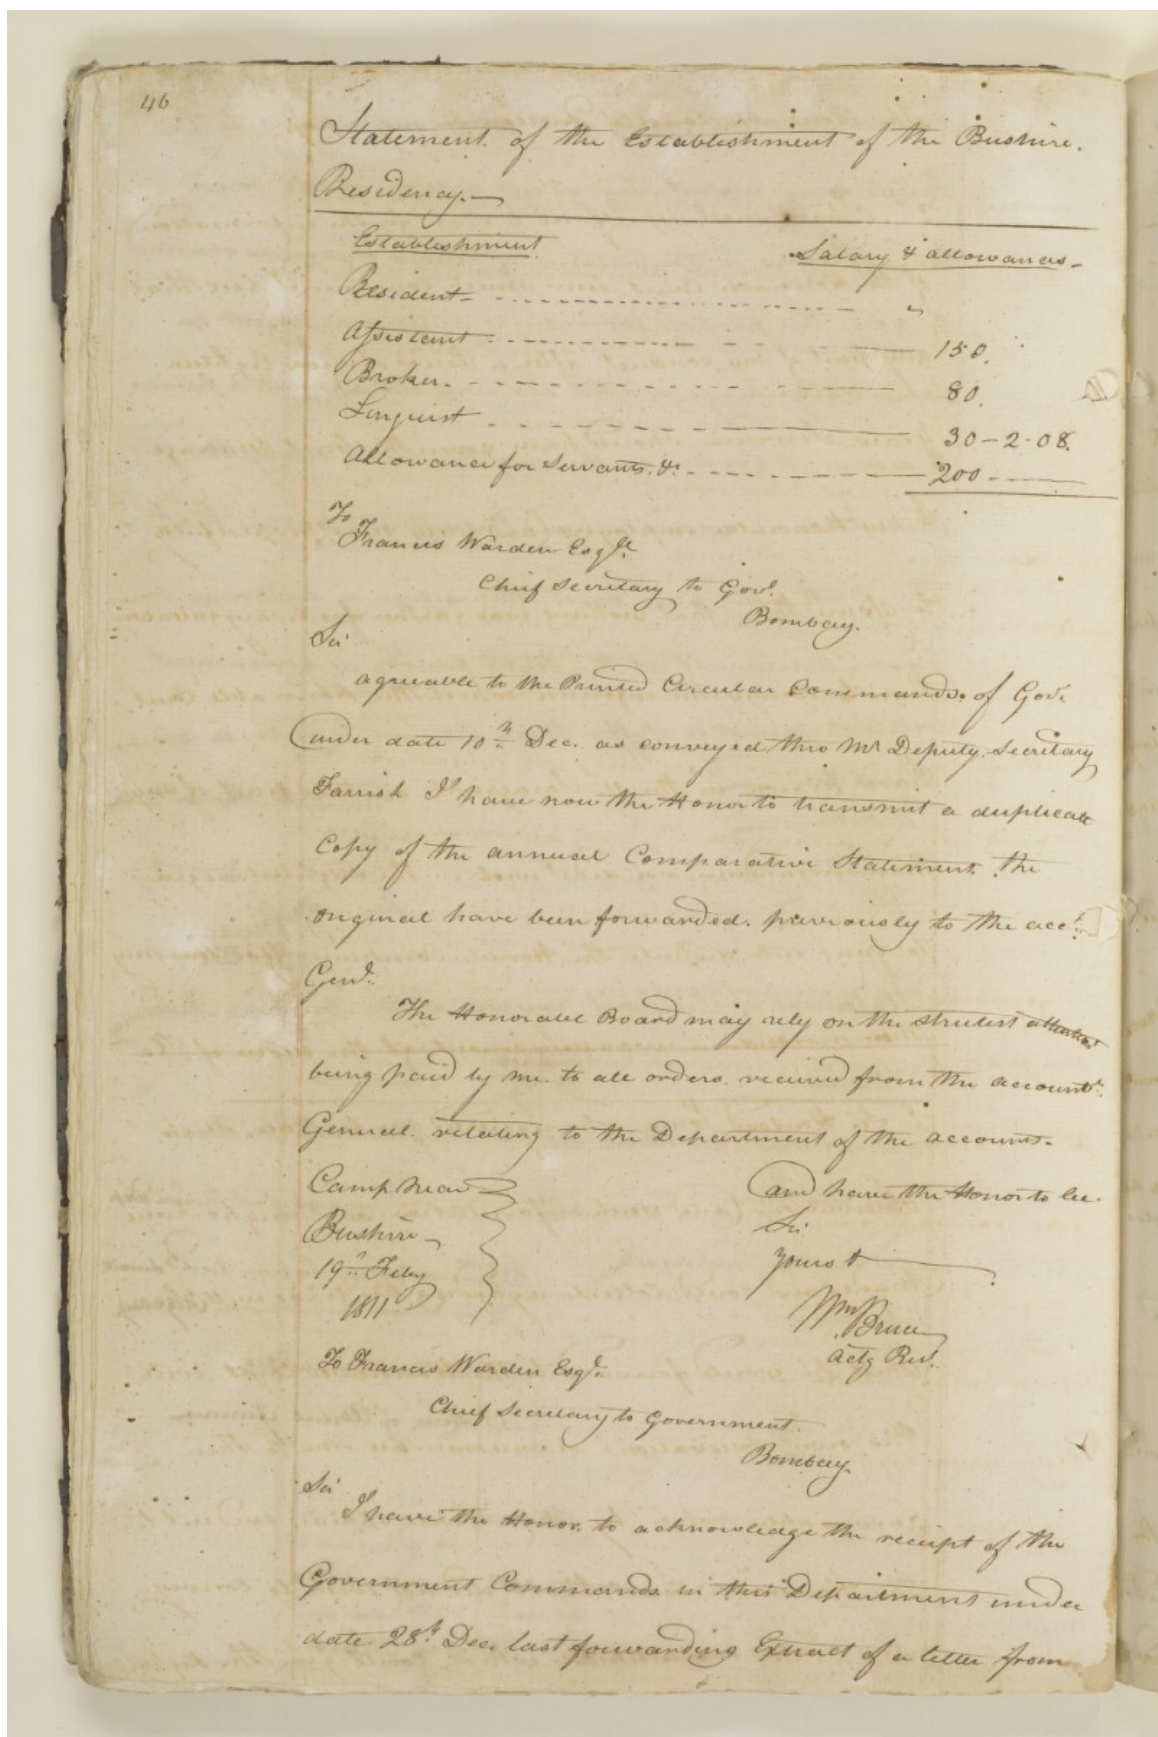 46
Statement of the Establishment of the Bushire.
Residency.—
Establishment Salary & allowances-
Resident- "
Assistant 150.
Broker. 80.
Linguist 30-2-08.
Allowance for Servants. &c. 200
To
Francis Warden Esqre.
Chief Secretary to Govt.
Bombay.
Sir
agreeable to the Printed Circular Commands. of Govt.
under date 10th Dec. as conveyed thro Mr Deputy. Secretary
Farish I have now the Honor to transmit a duplicate
Copy of the annual Comparative Statement the
original have been forwarded. previously to the acct.
Genl.
The Honorable Board may rely on the strictest attention
being paid by me. to all orders. received from the accountt.
General. relating to the Department of the accounts-
Camp near and have the Honor to be
Bushire- Sir
19th Feby Yours &
1811 Wm Bruce
To Francis Warden Esqr. actg Rest.
Chief Secretary to Government.
Bombay.
Sir
I have the Honor. to acknowledge the receipt of the
Government Commands in this Department under
date 28th Dec. last forwarding Extract of a letter from